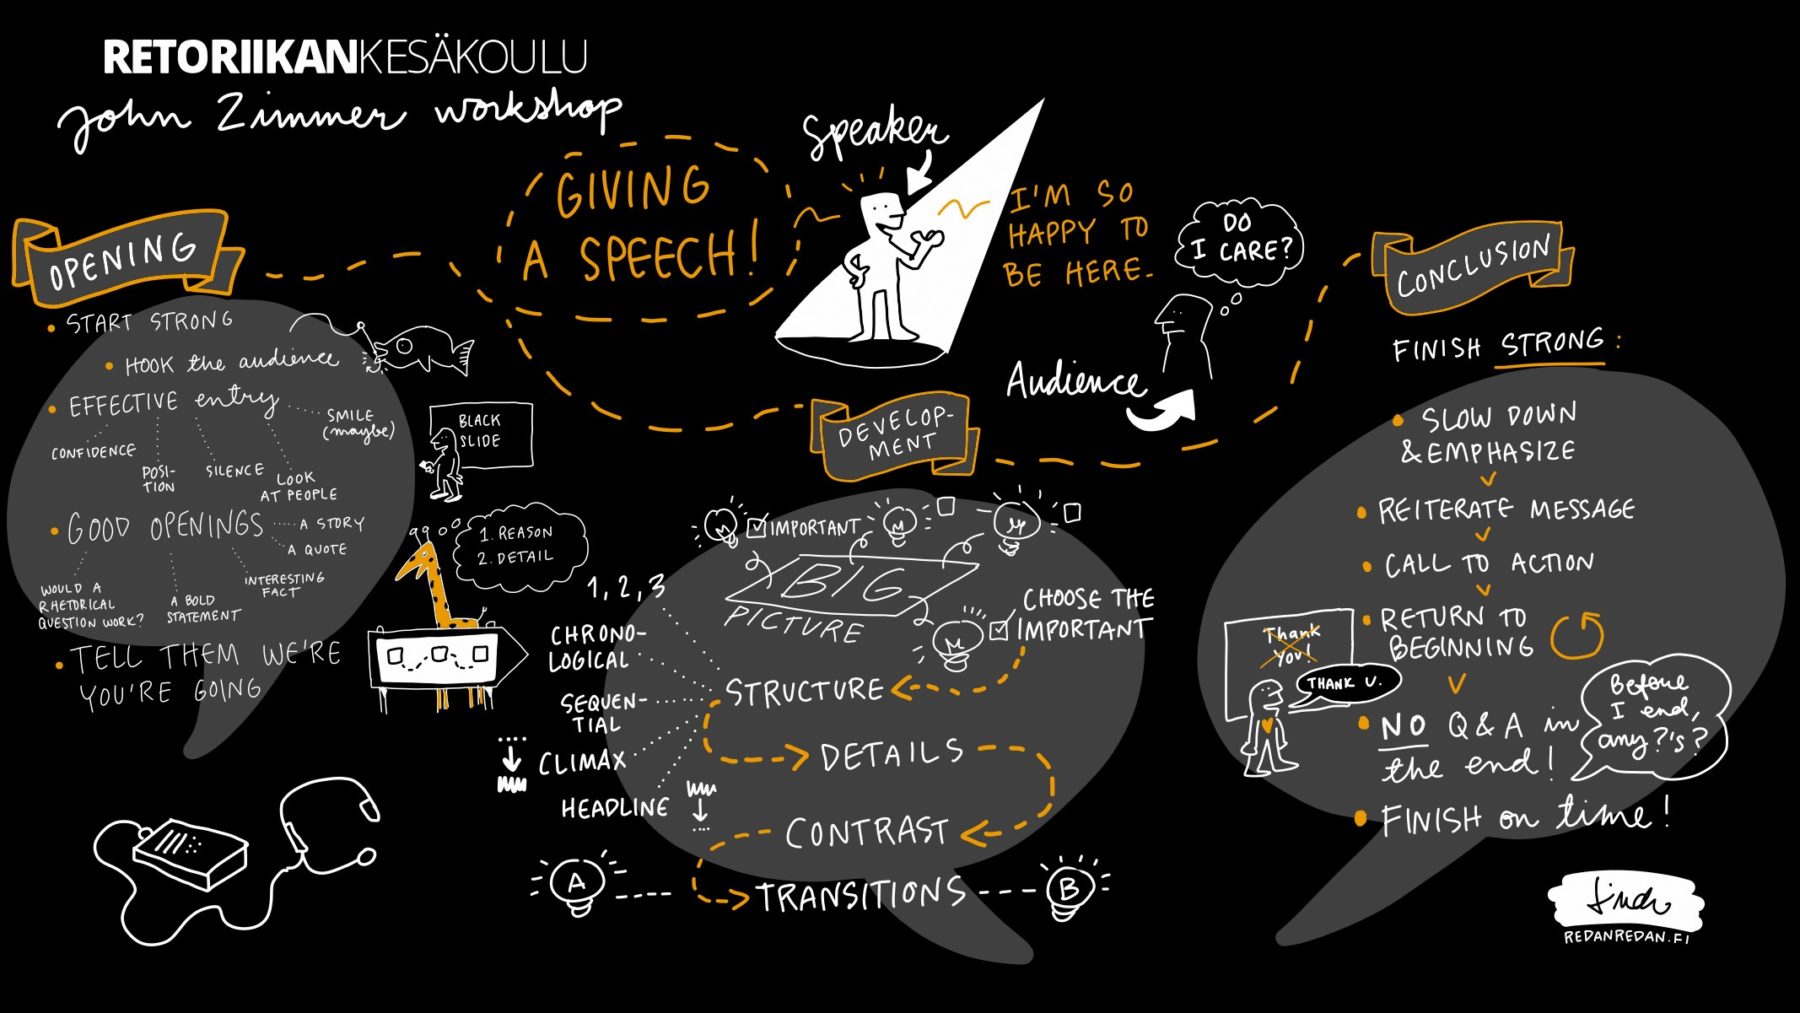 RETORIIKANKESÄKOULU
John Zimmer workshop
GIVING
A SPEECH!
Speaker
I'M SO
HAPPY TO
BE HERE.
DO
I CARE?
Audience
OPENING
• START STRONG
• HOOK the audience
• EFFECTIVE entry
SMILE
(maybe)
CONFIDENCE
POSI-
TION
SILENCE
LOOK
AT PEOPLE
BLACK
SLIDE
• GOOD OPENINGS
A STORY
A QUOTE
WOULD A
RHETORICAL
QUESTION WORK?
A BOLD
STATEMENT
INTERESTING
FACT
• TELL THEM WE'RE
YOU'RE GOING
1. REASON
2. DETAIL
DEVELOP-
MENT
IMPORTANT
BIG
PICTURE
CHOOSE THE
IMPORTANT
1, 2, 3
CHRONO-
LOGICAL
SEQUEN-
TIAL
CLIMAX
HEADLINE
STRUCTURE
DETAILS
CONTRAST
A
TRANSITIONS
B
CONCLUSION
FINISH STRONG:
• SLOW DOWN
& EMPHASIZE
• REITERATE MESSAGE
• CALL TO ACTION
• RETURN TO
BEGINNING
Thank
You!
THANK U.
• NO Q & A in
the end!
Before
I end,
any ?'s?
• FINISH on time!
REDANREDAN.FI